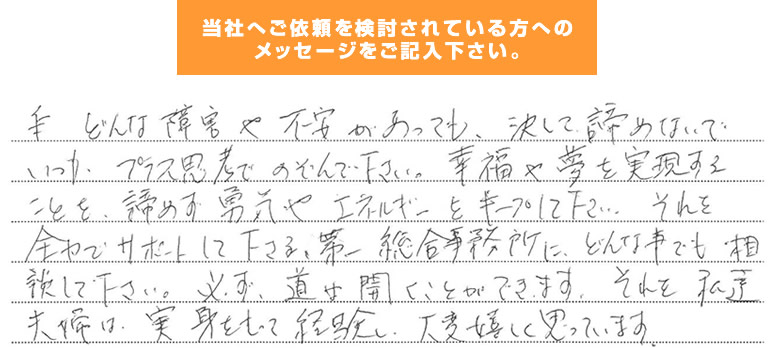 当社へご依頼を検討されている方への
メッセージをご記入下さい。
どんな障害や不安があっても、決して諦めないで
いつも、プラス思考でのぞんで下さい。幸福や夢を実現する
ことを、諦めず勇気やエネルギーをキープして下さい。それを
全力でサポートして下さる、第一総合事務所に、どんな事でも相
談して下さい。必ず、道は開くことができます。それを私達
夫婦は、実身をもって経験し、大変嬉しく思っています。